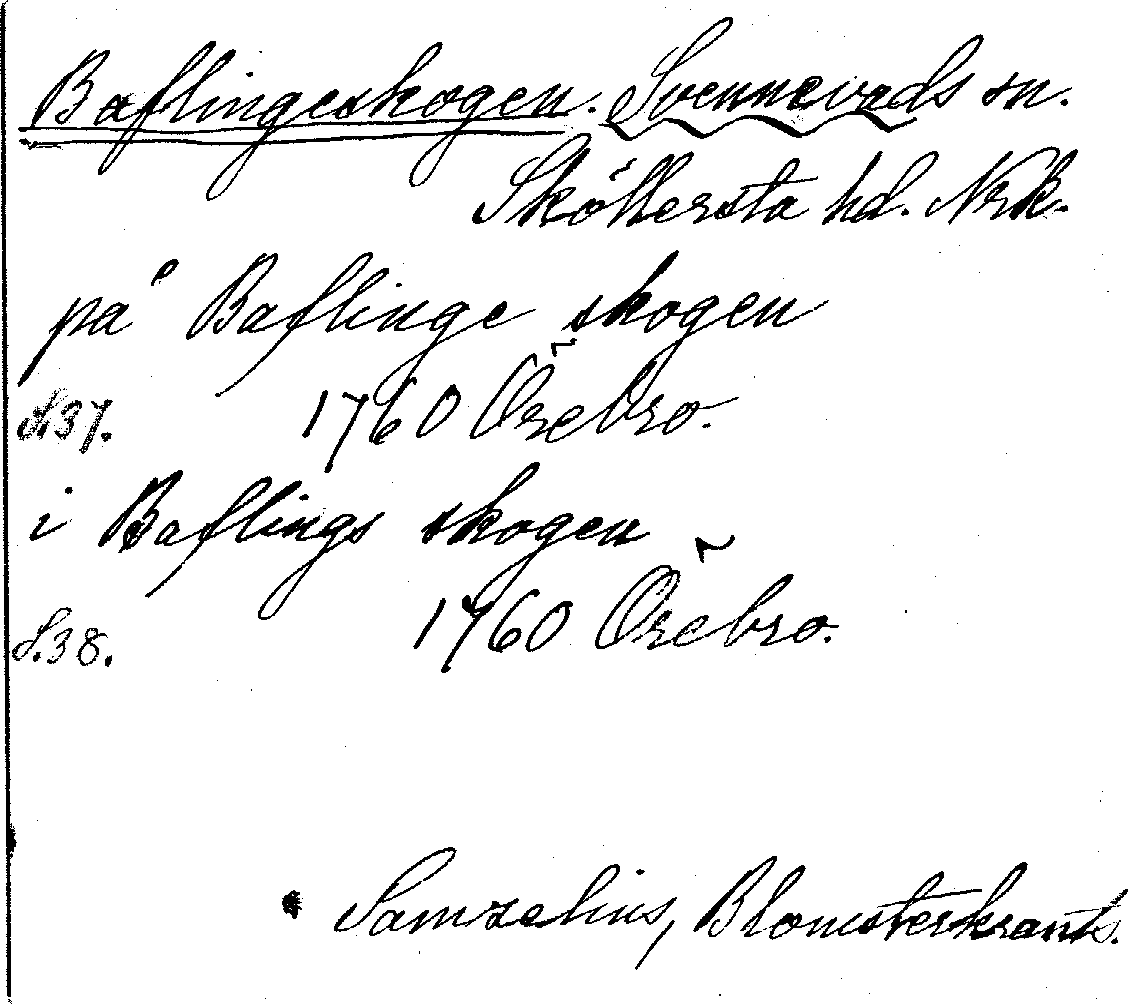 Baflingeskogen. Svennevads sn.
Sköllersta hd. Nrk.
på Baflinge skogen
S.37. 1760 Örebro.
i Baflings skogen
S.38. 1760 Örebro.
Samzelius, Blomsterkrants.